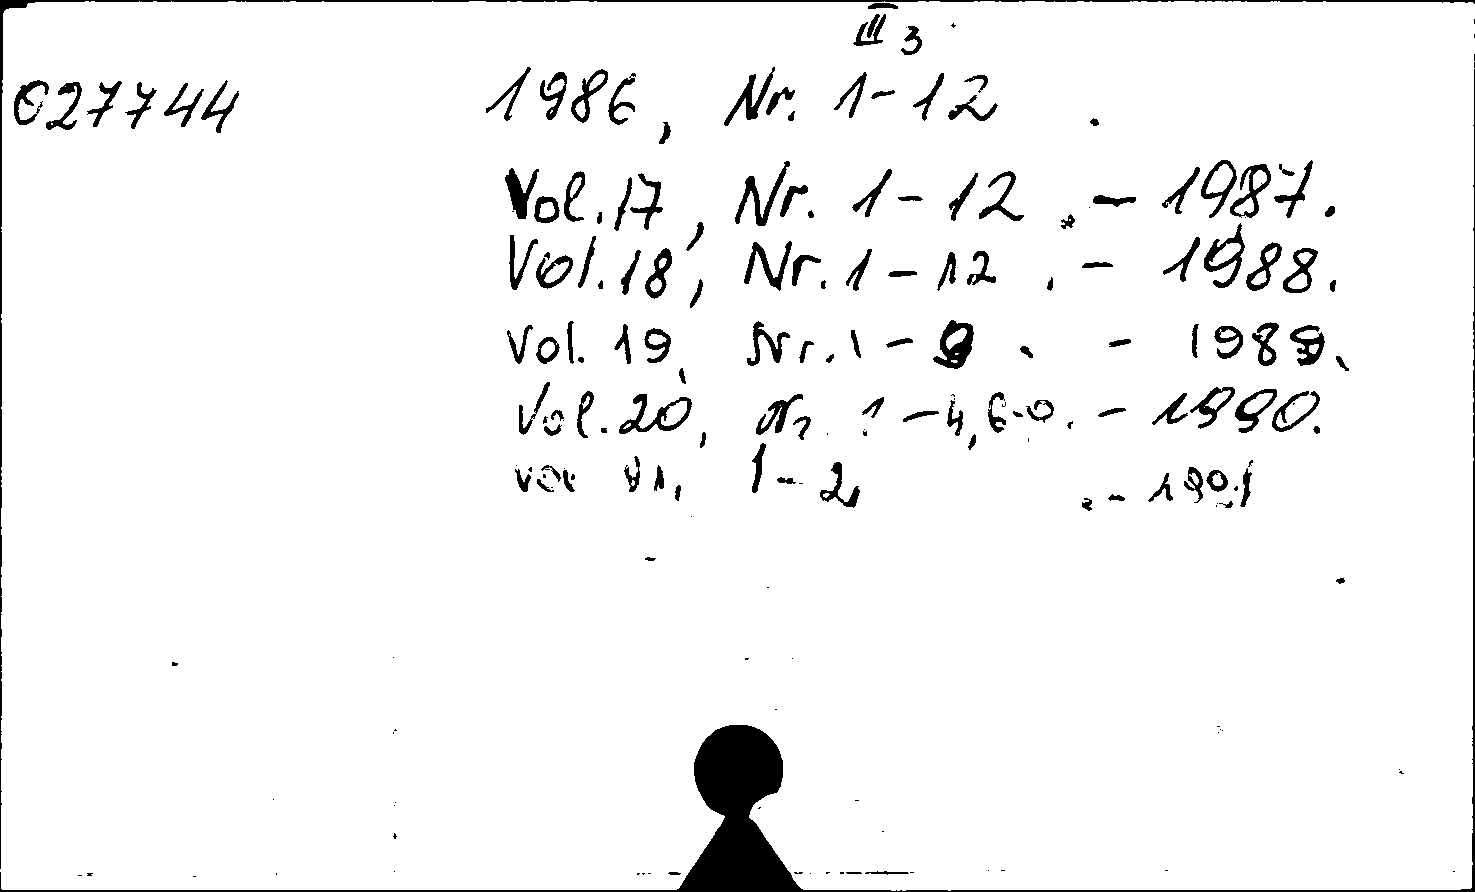 III 3
027744 1986, Nr. 1-12 .
Vol. 17, Nr. 1-12 . - 1987.
Vol. 18, Nr. 1-12 . - 1988.
Vol. 19, Nr. 1-9 . - 1989.
Vol. 20, Nr 1-4, 6- . - 1990.
Vol 21, 1-2, . - 1991